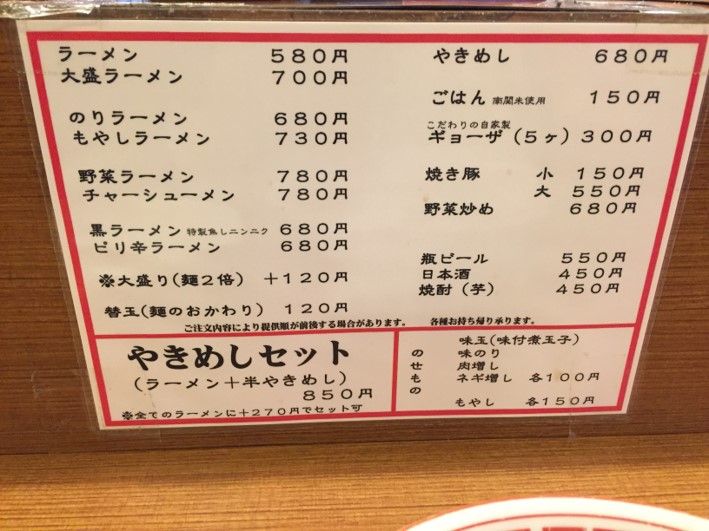 ラーメン ５８０円
大盛ラーメン ７００円
のりラーメン ６８０円
もやしラーメン ７３０円
野菜ラーメン ７８０円
チャーシューメン ７８０円
黒ラーメン 特製焦しニンニク ６８０円
ピリ辛ラーメン ６８０円
※大盛り(麺２倍) ＋１２０円
替玉(麺のおかわり) １２０円
やきめし ６８０円
ごはん 南関米使用 １５０円
こだわりの自家製
ギョーザ（５ヶ）３００円
焼き豚 小 １５０円
大 ５５０円
野菜炒め ６８０円
瓶ビール ５５０円
日本酒 ４５０円
焼酎（芋） ４５０円
ご注文内容により提供順が前後する場合があります。 各種お持ち帰り承ります。
やきめしセット
（ラーメン＋半やきめし）
８５０円
※全てのラーメンに＋２７０円でセット可
のせもの
味玉(味付煮玉子)
味のり
肉増し
ネギ増し 各１００円
もやし 各１５０円